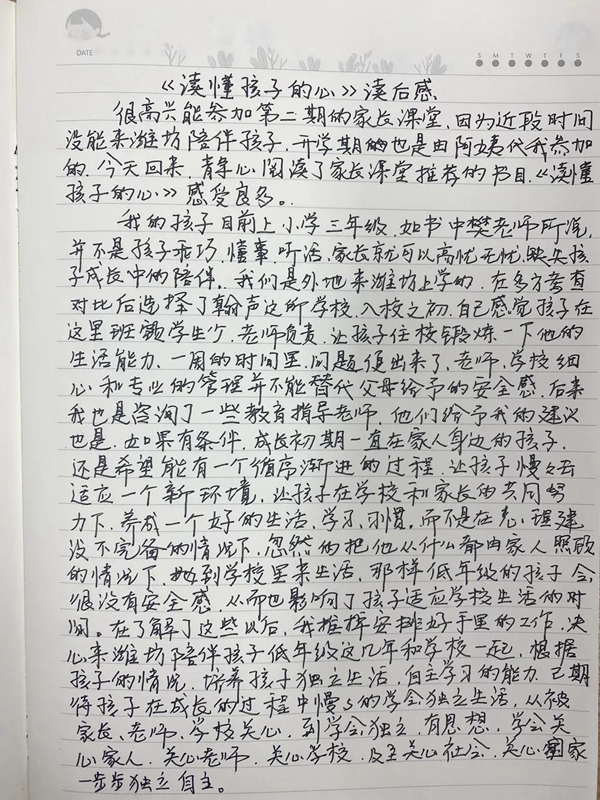 DATE
S M T W T F S
《读懂孩子的心》读后感
很高兴能参加第二期的家长课堂,因为近段时间
没能来潍坊陪伴孩子,开学期的也是由阿姨代我参加
的,今天回来,静心阅读了家长课堂推荐的书目《读懂
孩子的心》感受良多。
我的孩子目前上小学三年级,如书中樊老师所说,
并不是孩子乖巧,懂事,听话,家长就可以高忱无忧,缺失孩
子成长中的陪伴。我们是外地来潍坊上学的,在多方考查
对比后选择了翰声这所学校,入校之初,自己感觉孩子在
这里班额学生少,老师负责,让孩子住校锻炼一下他的
生活能力,一周的时间里,问题便出来了,老师,学校细
心和专业的管理并不能替代父母给予的安全感,后来
我也是咨询了一些教育指导老师,他们给予我的建议
也是,如果有条件,成长初期一直在家人身边的孩子,
还是希望能有一个循序渐进的过程,让孩子慢慢去
适应一个新环境,让孩子在学校和家长的共同努
力下,养成一个好的生活,学习,习惯。而不是在心理建
设不完备的情况下,忽然的把他从什么都由家人照顾
的情况下,放到学校里来生活,那样低年级的孩子会
很没有安全感,从而也影响了孩子适应学校生活的时
间。在了解了这些以后,我推掉安排好手里的工作,决
心来潍坊陪伴孩子低年级这几年和学校一起,根据
孩子的情况,培养孩子独立生活,自主学习的能力,已期
待孩子在成长的过程中慢慢的学会独立生活,从被
家长、老师、学校关心,到学会独立,有思想,学会关
心家人,关心老师,关心学校,及至关心社会,关心国家
一步步独立自主。